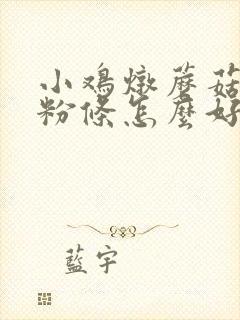 小鸡燉蘑菇
粉條怎麼好
藍宇